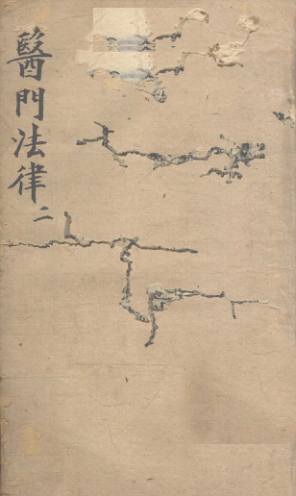 醫門法律 二